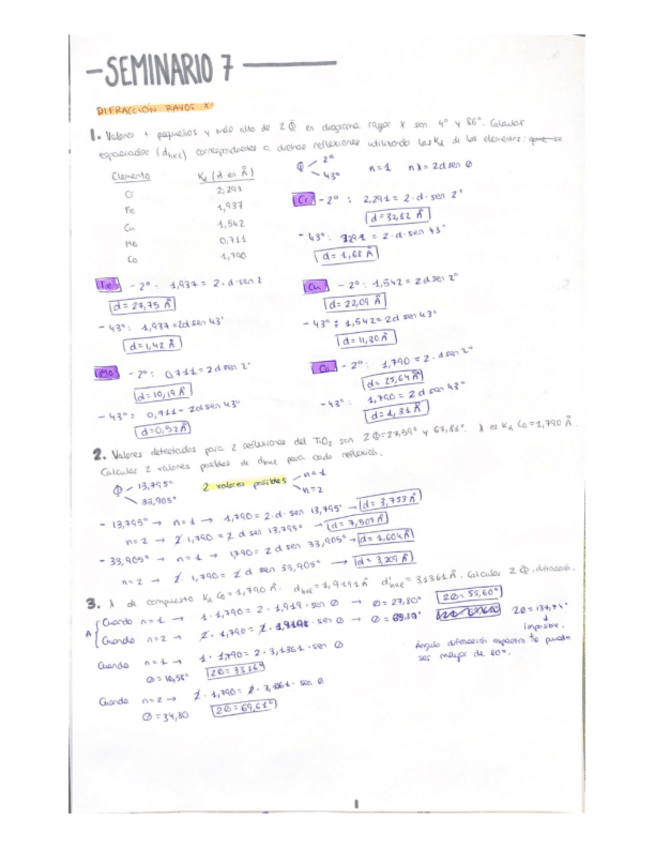 - SEMINARIO 7
DIFRACCIÓN RAYOS X
1. Valores + pequeños y más alto de 2 Φ en diagrama rayos X son 4° y 86°. Calcular
espaciador (dhkl) correspondientes a dichas reflexiones utilizando las Kα de los elementos:
Elemento Kα (λ en Å)
Cr 2,291
Fe 1,937
Cu 1,542
Mo 0,711
Co 1,790
Φ 2° 43° n=1 nλ=2d sen Φ
Cr - 2° : 2,291 = 2·d·sen 2°
d=32,82 Å
- 43° : 2,291 = 2·d·sen 43°
d=1,68 Å
Fe - 2° : 1,937 = 2·d·sen 2
d=27,75 Å
- 43° : 1,937=2d sen 43°
d=1,42 Å
Cu - 2° : 1,542=2d sen 2°
d=22,09 Å
- 43° : 1,542=2d sen 43°
d=11,30 Å
Mo - 2° : 0,711=2d sen 2°
d=10,19 Å
- 43° : 0,711=2d sen 43°
d=0,52 Å
Co - 2° : 1,790=2·d sen 2°
d=25,64 Å
- 43° : 1,790=2d sen 43°
d=1,31 Å
2. Valores detectados para 2 reflexiones del TiO2 son 2Φ=27,59° y 67,81°. λ es Kα Co=1,790 Å.
Calcular 2 valores posibles de dhkl para cada reflexión.
Φ 13,795° 33,905° 2 valores posibles n=1 n=2
- 13,795° → n=1 → 1,790=2·d·sen 13,795° → d=3,753 Å
n=2 → 2·1,790=2 d sen 13,795° → d=7,507 Å
- 33,905° → n=1 → 1,790=2 d sen 33,905° → d=1,604 Å
n=2 → 2·1,790=2 d sen 33,905° → d=3,209 Å
3. λ de compuesto Kα Co=1,790 Å. dhkl=1,9191 Å d'hkl=3,1361 Å. Calcular 2 Φ difracción.
A Cuando n=1 → 1·1,790=2·1,919·sen Φ → Φ=27,80° 2Φ=55,60°
Cuando n=2 → 2·1,790=2·1,9191·sen Φ → Φ= 2Φ=137,74°
imposible.
Ángulo difracción espectro no puede
ser mayor de
Cuando n=1 → 1·1,790=2·3,1361·sen Φ
Φ=16,58° 2Φ=33,16°
Cuando n=2 → 2·1,790=2·3,1361·sen Φ
Φ=34,80 2Φ=69,61°